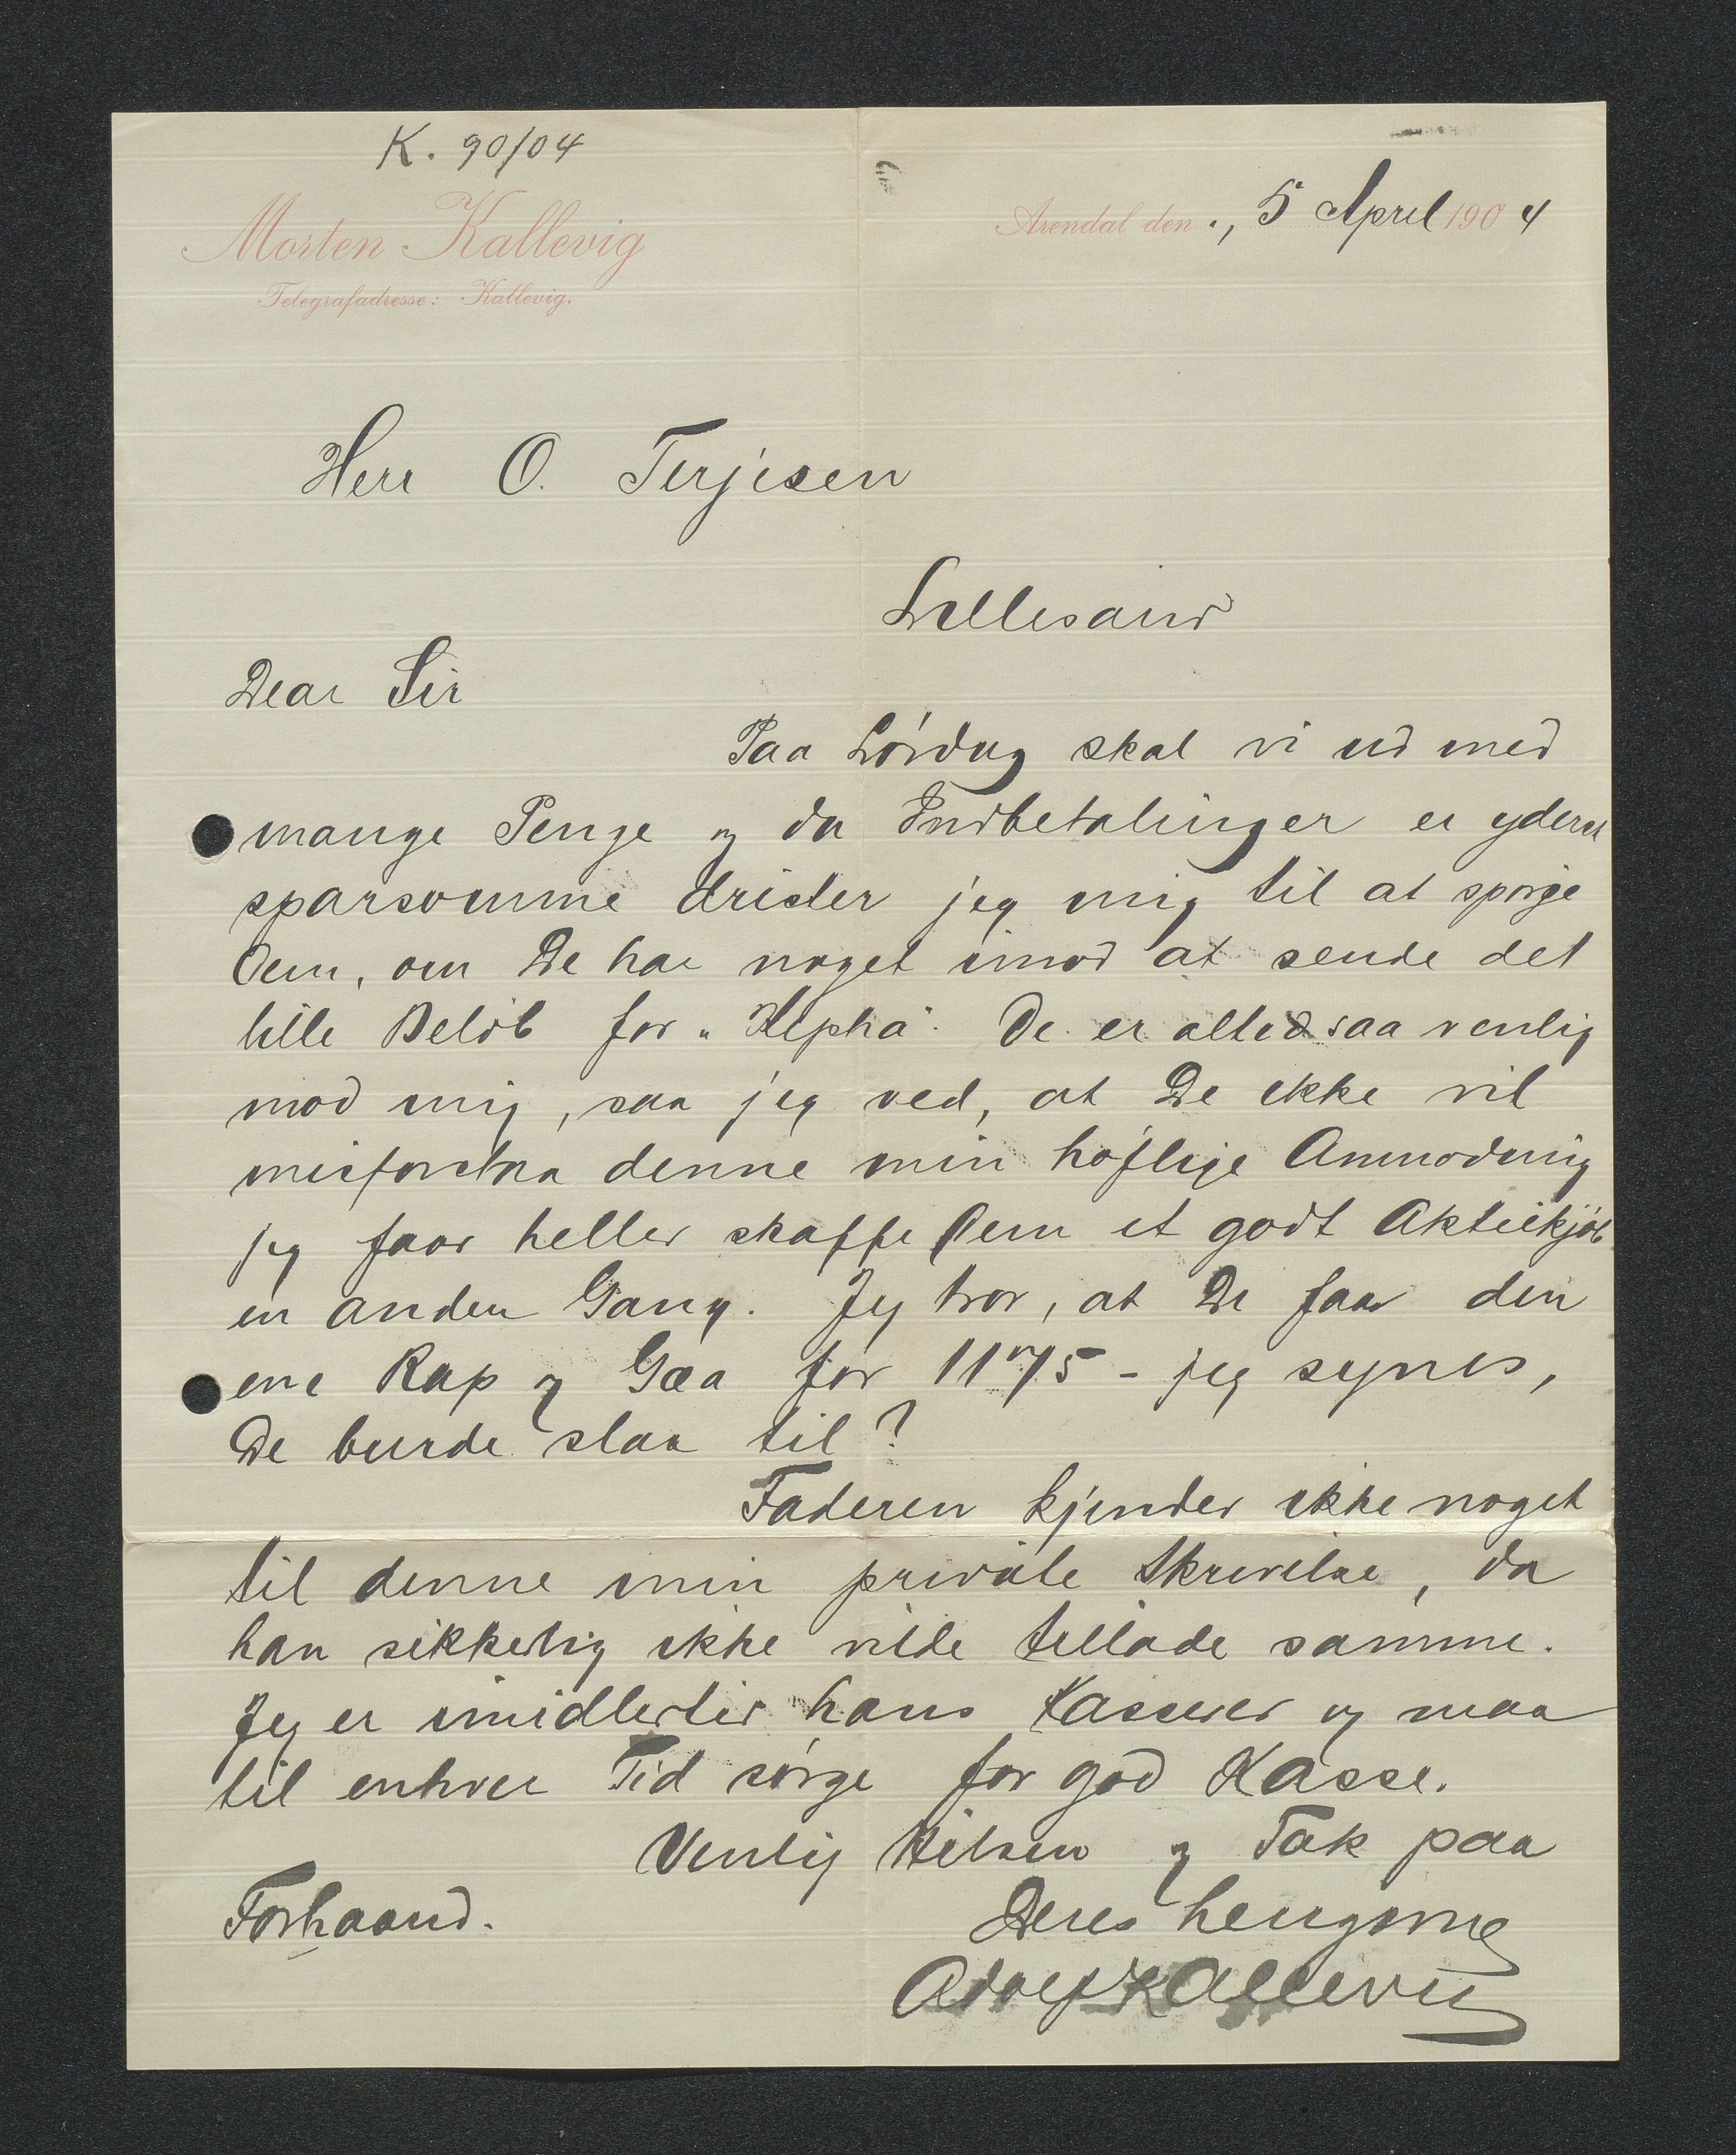 K. 90/04
Morten Kallevig
Telegrafadresse: Kallevig.
Arendal den 5 April 1904
Herr O. Terjesen
Lillesand
Dear Sir
Paa Lördag skal vi ud med
mange Penge og da Indbetalinger er yderst
sparsomme drister jeg mig til at spörge
Dem, om De har noget imod at sende det
lille Belöb for "Kepha". De er altid saa venlig
mod mig, saa jeg ved, at De ikke vil
misforstaa denne min höflige Anmodning
jeg faar heller skaffe Dem et godt Aktiekjöb
en anden Gang. Jeg tror, at De faar den
ene Rap og Gaa for 1175 - jeg synes,
De burde slaa til?
Faderen kjender ikke noget
til denne min private Skrivelse, da
han sikkerlig ikke vilde tillade samme.
Jeg er imidlertid hans Kasserer og maa
til enhver Tid sörge for god Kasse.
Venlig Hilsen og Tak paa
Forhaand.
Deres hengivne
Adolf Kallevig